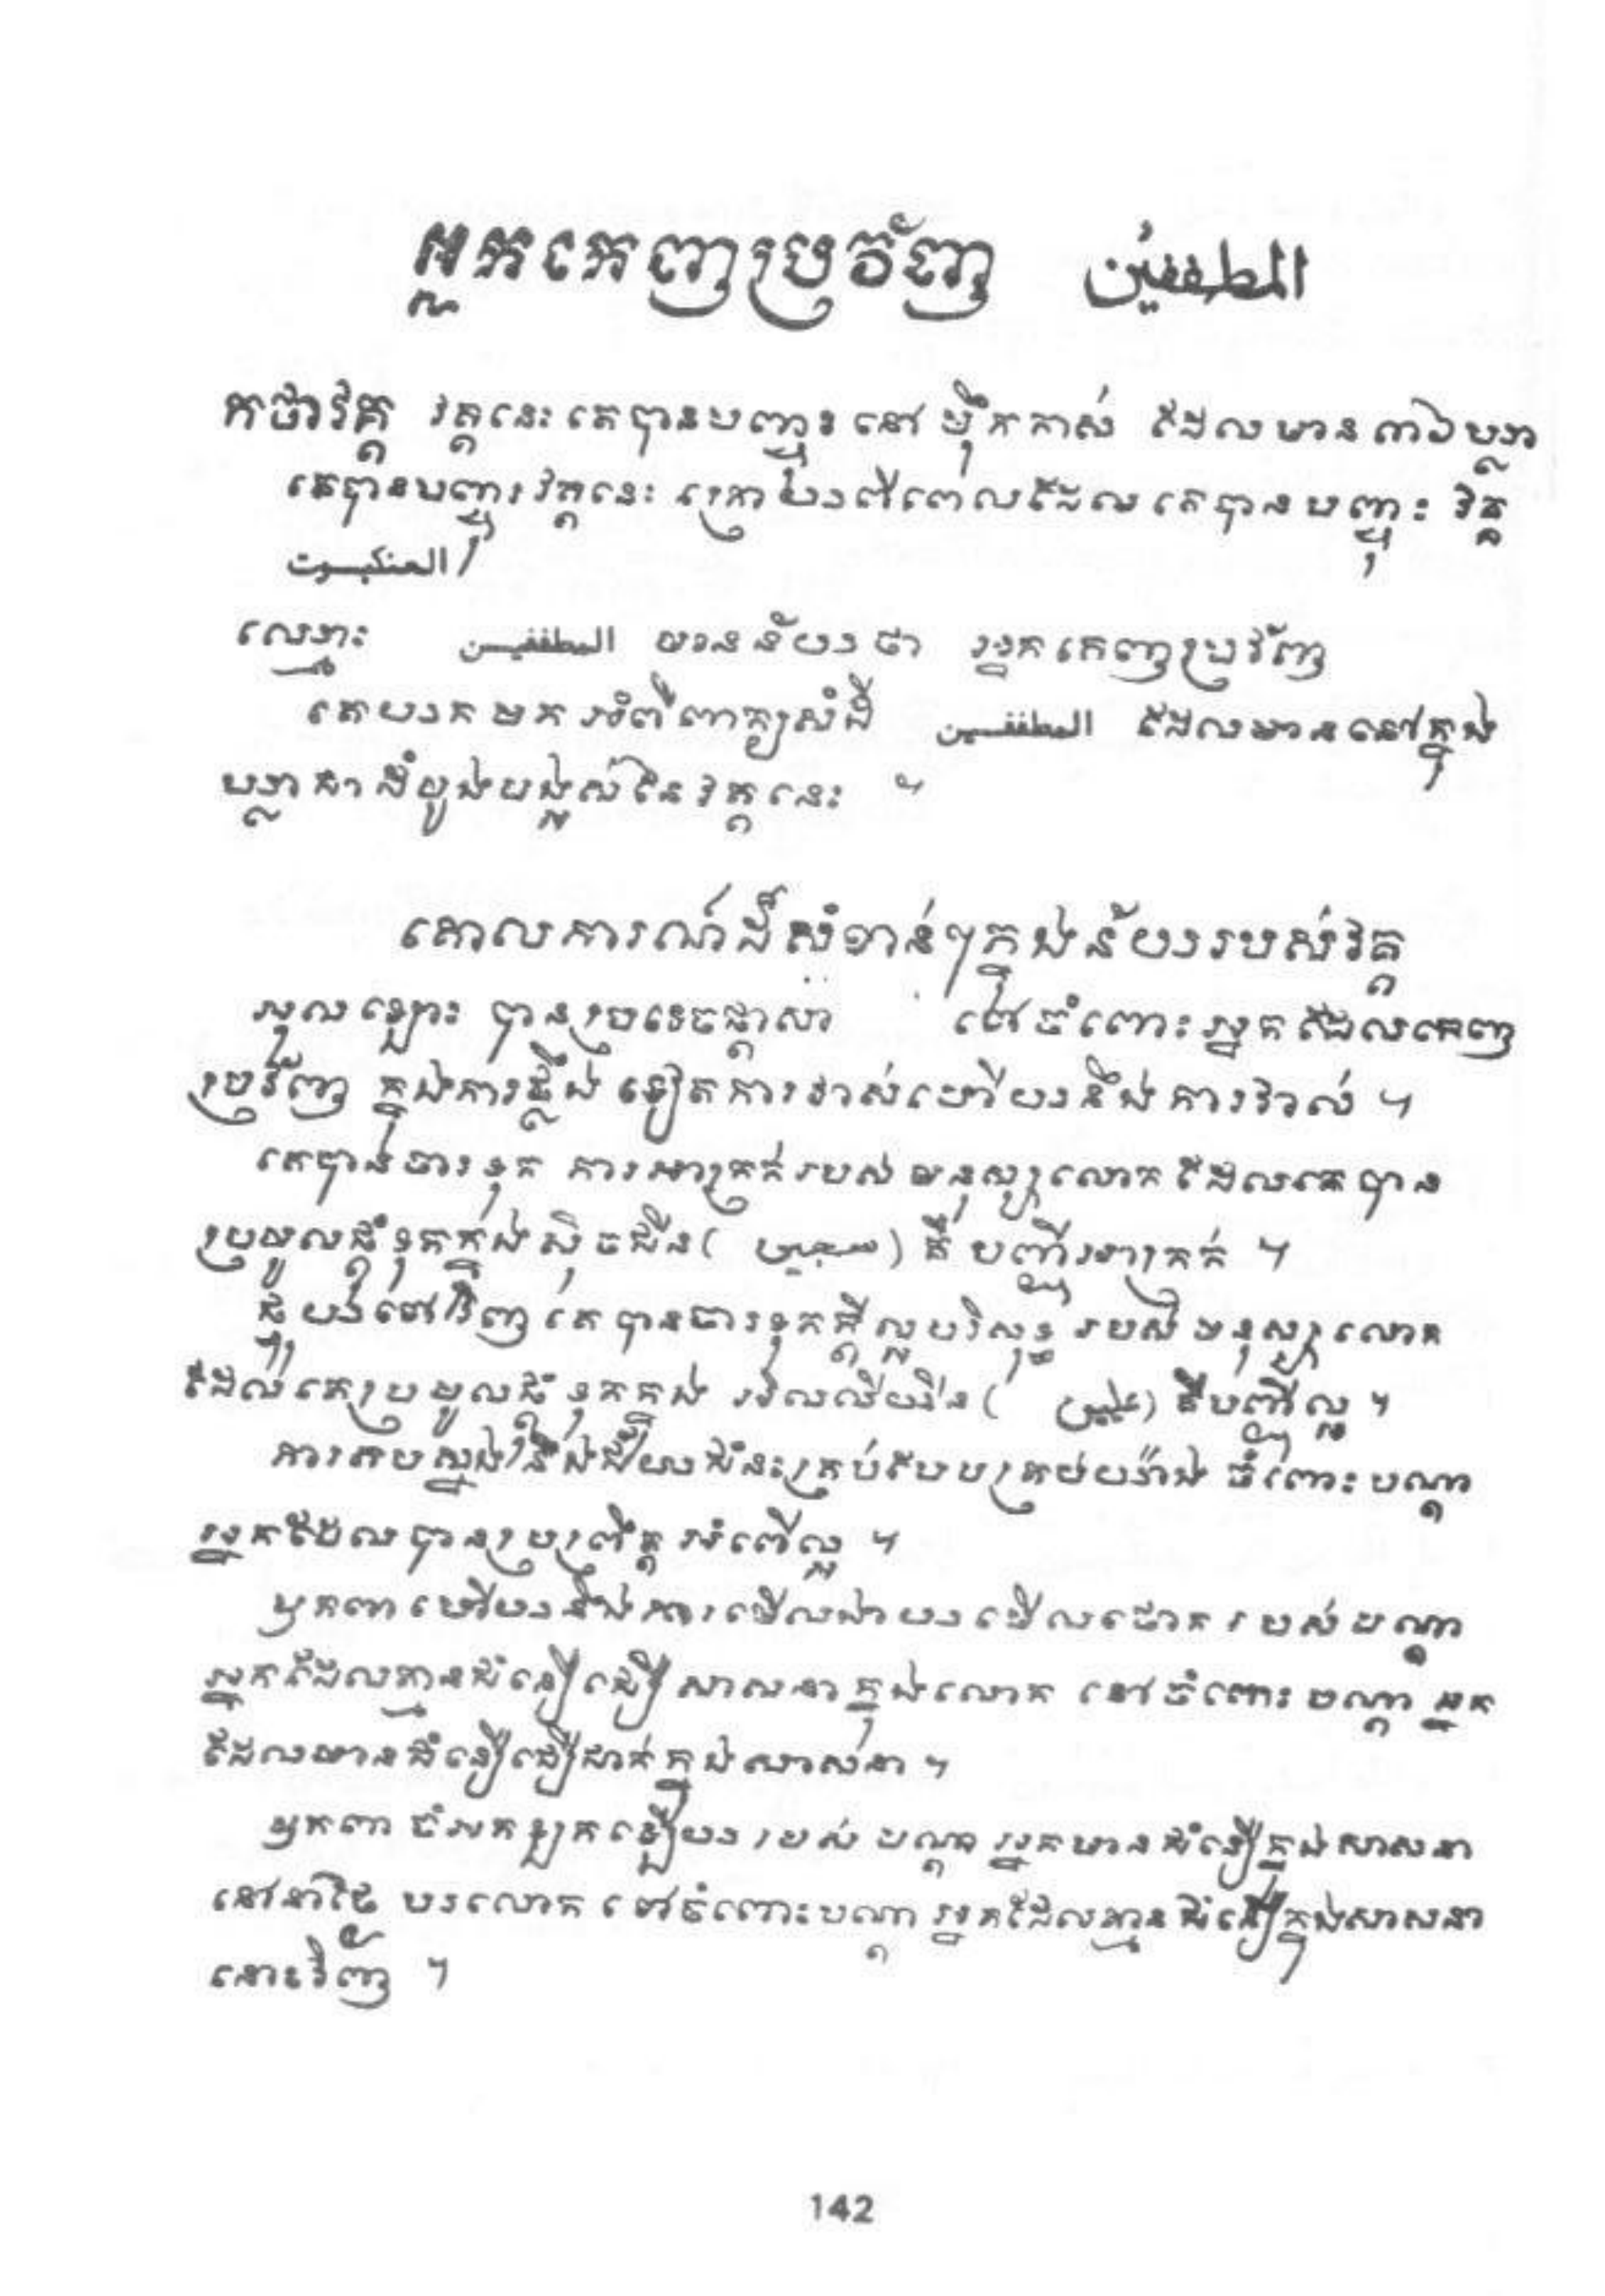 អ្នកកេញប្រវ័ញ المطففين
កថាវគ្គ វគ្គនេះគេបានបញ្ចុះនៅម៉ឹកកាស់ ដែលមាន៣៦ឃ្លា
គេបានបញ្ចុះវគ្គនេះ ក្រោយពីពេលដែលគេបានបញ្ចុះ វគ្គ
العنكبوت
ឈ្មោះ المطففين មានន័យថា អ្នកកេញប្រវ័ញ
គេយកមកអំពីពាក្យសំដី المطففين ដែលមាននៅក្នុង
ឃ្លាគាដំបូងបង្អស់នៃវគ្គនេះ ។
គោលការណ៍ដ៏សំខាន់ៗក្នុងន័យរបស់វគ្គ
អុលឡោះ បានប្រទេចផ្ដាសា ទៅចំពោះអ្នកដែលកេញ
ប្រវ័ញ ក្នុងការថ្លឹង ទៀតការវាស់ហើយនឹងការវាល់ ។
គេបានចារទុក ការអាក្រក់របស់មនុស្សលោកដែលគេបាន
ប្រមូលផ្ដុំទុកក្នុងស៊ិចជីន( سجين ) គឺបញ្ជីអាក្រក់ ។
ផ្ទុយទៅវិញគេបានចារទុកក្ដីល្អបរិសុទ្ធ របស់មនុស្សលោក
ដែលគេប្រមូលផ្ដុំទុកក្នុង អិលលីយីន( عليين ) គឺបញ្ជីល្អ ។
ការតបស្នងនឹងជ័យជំនះគ្រប់បែបគ្រប់យ៉ាង ចំពោះបណ្ដា
អ្នកដែលបានប្រព្រឹត្តអំពើល្អ ។
ឫកពា ហើយនឹងការមើលងាយមើលថោក របស់បណ្ដា
អ្នកដែលគ្មានជំនឿជឿសាសនាក្នុងលោក នៅចំពោះបណ្ដាអ្នក
ដែលមានជំនឿជឿជាក់ក្នុងសាសនា ។
ឫកពា ចំអកឡកឡឺយ របស់បណ្ដាអ្នកមានជំនឿក្នុងសាសនា
នៅនាថ្ងៃ បរលោក ទៅចំពោះបណ្ដាអ្នកដែលគ្មានជំនឿក្នុងសាសនា
នោះវិញ ។
142